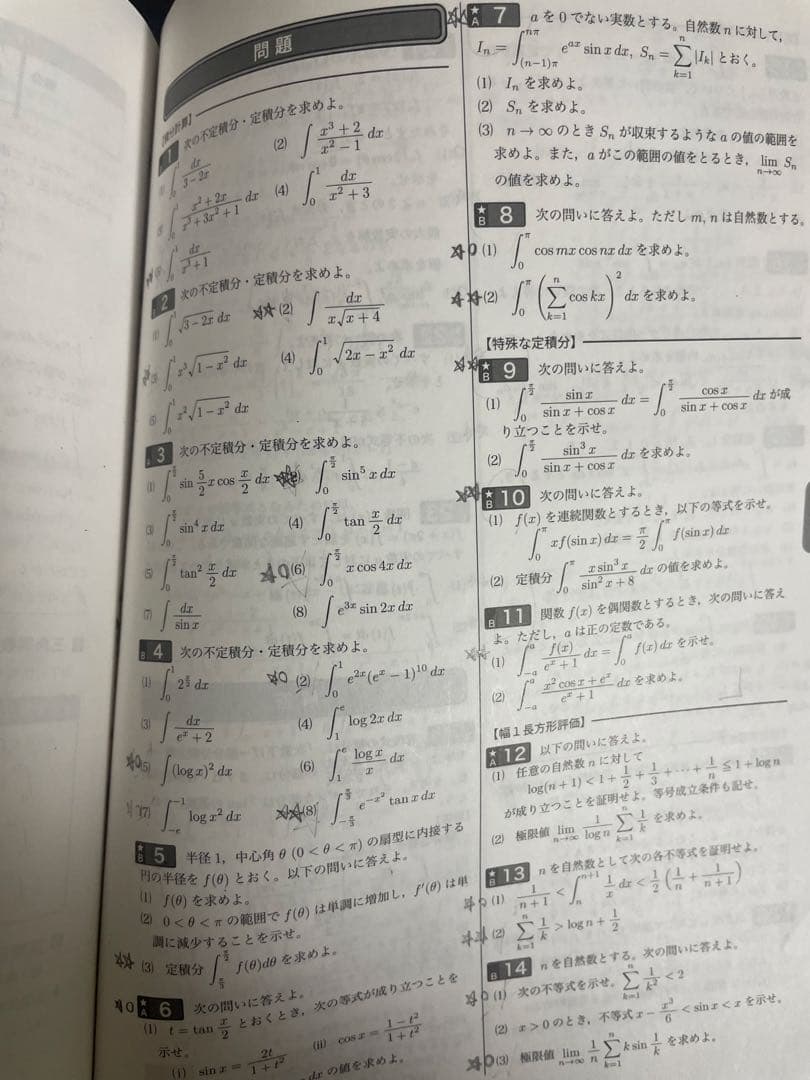 問題
【積分計算】
1 次の不定積分・定積分を求めよ。
∫₀¹ dx/(3−2x) (2) ∫ (x³+2)/(x²−1) dx
∫₀¹ (x²+2x)/(x³+3x²+1) dx (4) ∫₀¹ dx/(x²+3)
∫₀¹ dx/(x³+1)
2 次の不定積分・定積分を求めよ。
(1) ∫₀¹ √(3−2x) dx ☆☆(2) ∫ dx/(x√(x+4))
(3) ∫₀¹ x³√(1−x²) dx (4) ∫₀¹ √(2x−x²) dx
(5) ∫₀¹ x²√(1−x²) dx
A 3 次の不定積分・定積分を求めよ。
(1) ∫₀^(π/2) sin (5/2)x cos (x/2) dx ∫₀^(π/2) sin⁵ x dx
(3) ∫₀^(π/2) sin⁴ x dx (4) ∫₀^(π/2) tan (x/2) dx
(5) ∫₀^(π/2) tan² (x/2) dx ☆0(6) ∫₀^(π/2) x cos 4x dx
(7) ∫ dx/sin x (8) ∫ e^(3x) sin 2x dx
B 4 次の不定積分・定積分を求めよ。
(1) ∫₀¹ 2^(x/2) dx ☆0(2) ∫₀¹ e^(2x)(e^x−1)^10 dx
(3) ∫ dx/(e^x+2) (4) ∫₁^e log 2x dx
☆0(5) ∫(log x)² dx (6) ∫₁^e (log x)/x dx
(7) ∫₋ₑ^(−1) log x² dx ☆☆(8) ∫_(−π/3)^(π/3) e^(−x²) tan x dx
★B 5 半径1, 中心角θ (0<θ<π) の扇型に内接する
円の半径を f(θ) とおく。以下の問いに答えよ。
(1) f(θ) を求めよ。
(2) 0<θ<π の範囲で f(θ) は単調に増加し, f′(θ) は単
調に減少することを示せ。
☆☆(3) 定積分 ∫ f(θ)dθ を求めよ。
☆0 ★A 6 次の問いに答えよ。
(1) t=tan (x/2) とおくとき, 次の等式が成り立つことを
示せ。
(i) sin x = 2t/(1+t²) (ii) cos x = (1−t²)/(1+t²)
dx の値を求めよ。
☆☆ ★A 7 a を 0 でない実数とする。自然数 n に対して,
Iₙ = ∫_((n−1)π)^(nπ) e^(ax) sin x dx, Sₙ = Σ_(k=1)^n |Iₖ| とおく。
(1) Iₙ を求めよ。
(2) Sₙ を求めよ。
(3) n→∞ のとき Sₙ が収束するような a の値の範囲を
求めよ。また, a がこの範囲の値をとるとき, lim_(n→∞) Sₙ
の値を求めよ。
★B 8 次の問いに答えよ。ただし m, n は自然数とする。
☆0(1) ∫₀^π cos mx cos nx dx を求めよ。
☆☆(2) ∫₀^π (Σ_(k=1)^n cos kx)² dx を求めよ。
【特殊な定積分】
☆☆ ★B 9 次の問いに答えよ。
(1) ∫₀^(π/2) sin x/(sin x+cos x) dx = ∫₀^(π/2) cos x/(sin x+cos x) dx が成
り立つことを示せ。
(2) ∫₀^(π/2) sin³ x/(sin x+cos x) dx を求めよ。
☆☆ ★B 10 次の問いに答えよ。
(1) f(x) を連続関数とするとき, 以下の等式を示せ。
∫₀^π xf(sin x) dx = (π/2) ∫₀^π f(sin x) dx
(2) 定積分 ∫₀^π (x sin³ x)/(sin² x+8) dx の値を求めよ。
B 11 関数 f(x) を偶関数とするとき, 次の問いに答え
よ。ただし, a は正の定数である。
☆☆(1) ∫₋ₐ^a f(x)/(e^x+1) dx = ∫₀^a f(x) dx を示せ。
(2) ∫₋ₐ^a (x² cos x+e^x)/(e^x+1) dx を求めよ。
【幅1長方形評価】
★A 12 以下の問いに答えよ。
(1) 任意の自然数 n に対して
log(n+1) < 1+1/2+1/3+⋯+1/n ≦ 1+log n
が成り立つことを証明せよ。等号成立条件も記せ。
(2) 極限値 lim_(n→∞) (1/log n) Σ_(k=1)^n 1/k を求めよ。
★B 13 n を自然数として次の各不等式を証明せよ。
☆0(1) 1/(n+1) < ∫ₙ^(n+1) (1/x) dx < (1/2)(1/n + 1/(n+1))
☆☆(2) Σ_(k=1)^n 1/k > log n + 1/2
B 14 n を自然数とする。次の問いに答えよ。
☆0(1) 次の不等式を示せ。Σ_(k=1)^n 1/k² < 2
(2) x>0 のとき, 不等式 x − x³/6 < sin x < x を示せ。
☆0(3) 極限値 lim_(n→∞) (1/n) Σ_(k=1)^n k sin (1/k) を求めよ。